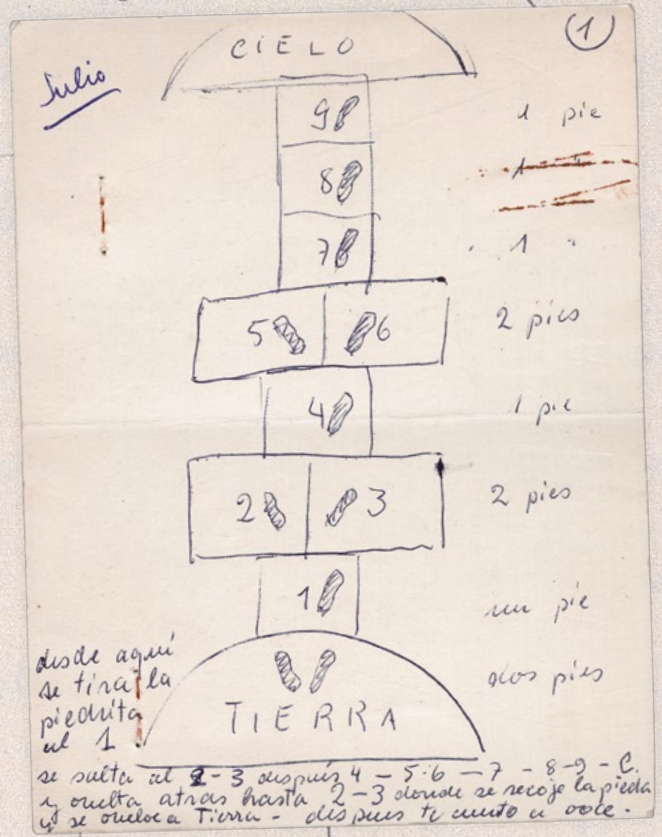 CIELO
1
Julio
9
1 pie
8
1 "
7
1 "
5
6
2 pies
4
1 pie
2
3
2 pies
1
un pie
dos pies
TIERRA
desde aquí
se tira la
piedrita
al 1
se salta al 2-3 después 4 - 5-6 - 7 - 8-9 - C.
y vuelta atrás hasta 2-3 donde se recoje la piedra
y se vuelve a Tierra - después te cuento a voce.